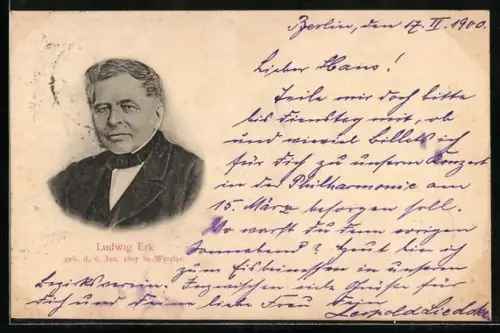 Berlin, den 17. II. 1900.
Lieber Hans!
Teile mir doch bitte
bis Dienstag mit, ob
und wieviel Billets ich
für Dich zu unserm Konzert
in der Philharmonie am
15 März besorgen soll.
Wo warst Du denn vorigen
Sonnabend? Heut bin ich
zum Eisbeinessen in unserm
Bezirksverein. Inzwischen viele Grüße für
Dich und Deine liebe Frau Dein
Leopold Liedtke
Ludwig Erk
geb. d. 6. Jan. 1807 in Wetzlar.